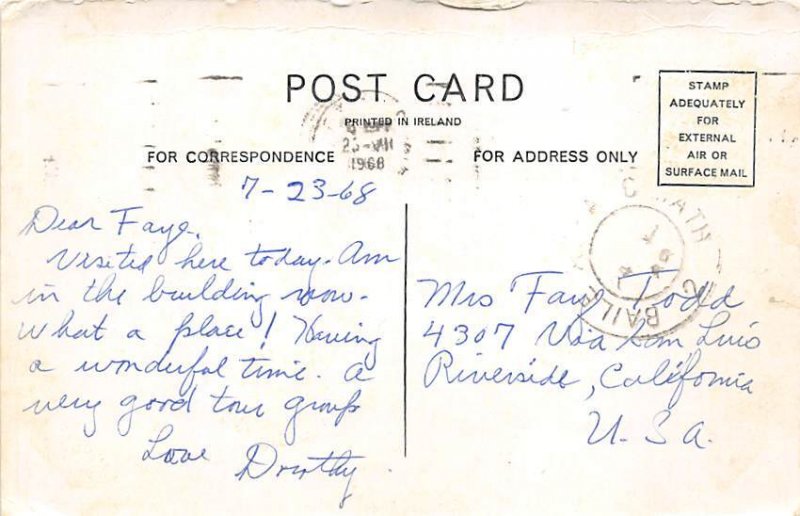 POST CARD
PRINTED IN IRELAND
FOR CORRESPONDENCE
FOR ADDRESS ONLY
STAMP
ADEQUATELY
FOR
EXTERNAL
AIR OR
SURFACE MAIL
1968
7-23-68
Dear Faye,
Visited here today. Am
in the building now.
What a place! Having
a wonderful time. A
very good tour group
Love
Dorothy
Mrs Faye Todd
4307 Via San Luis
Riverside, California
U.S.A.